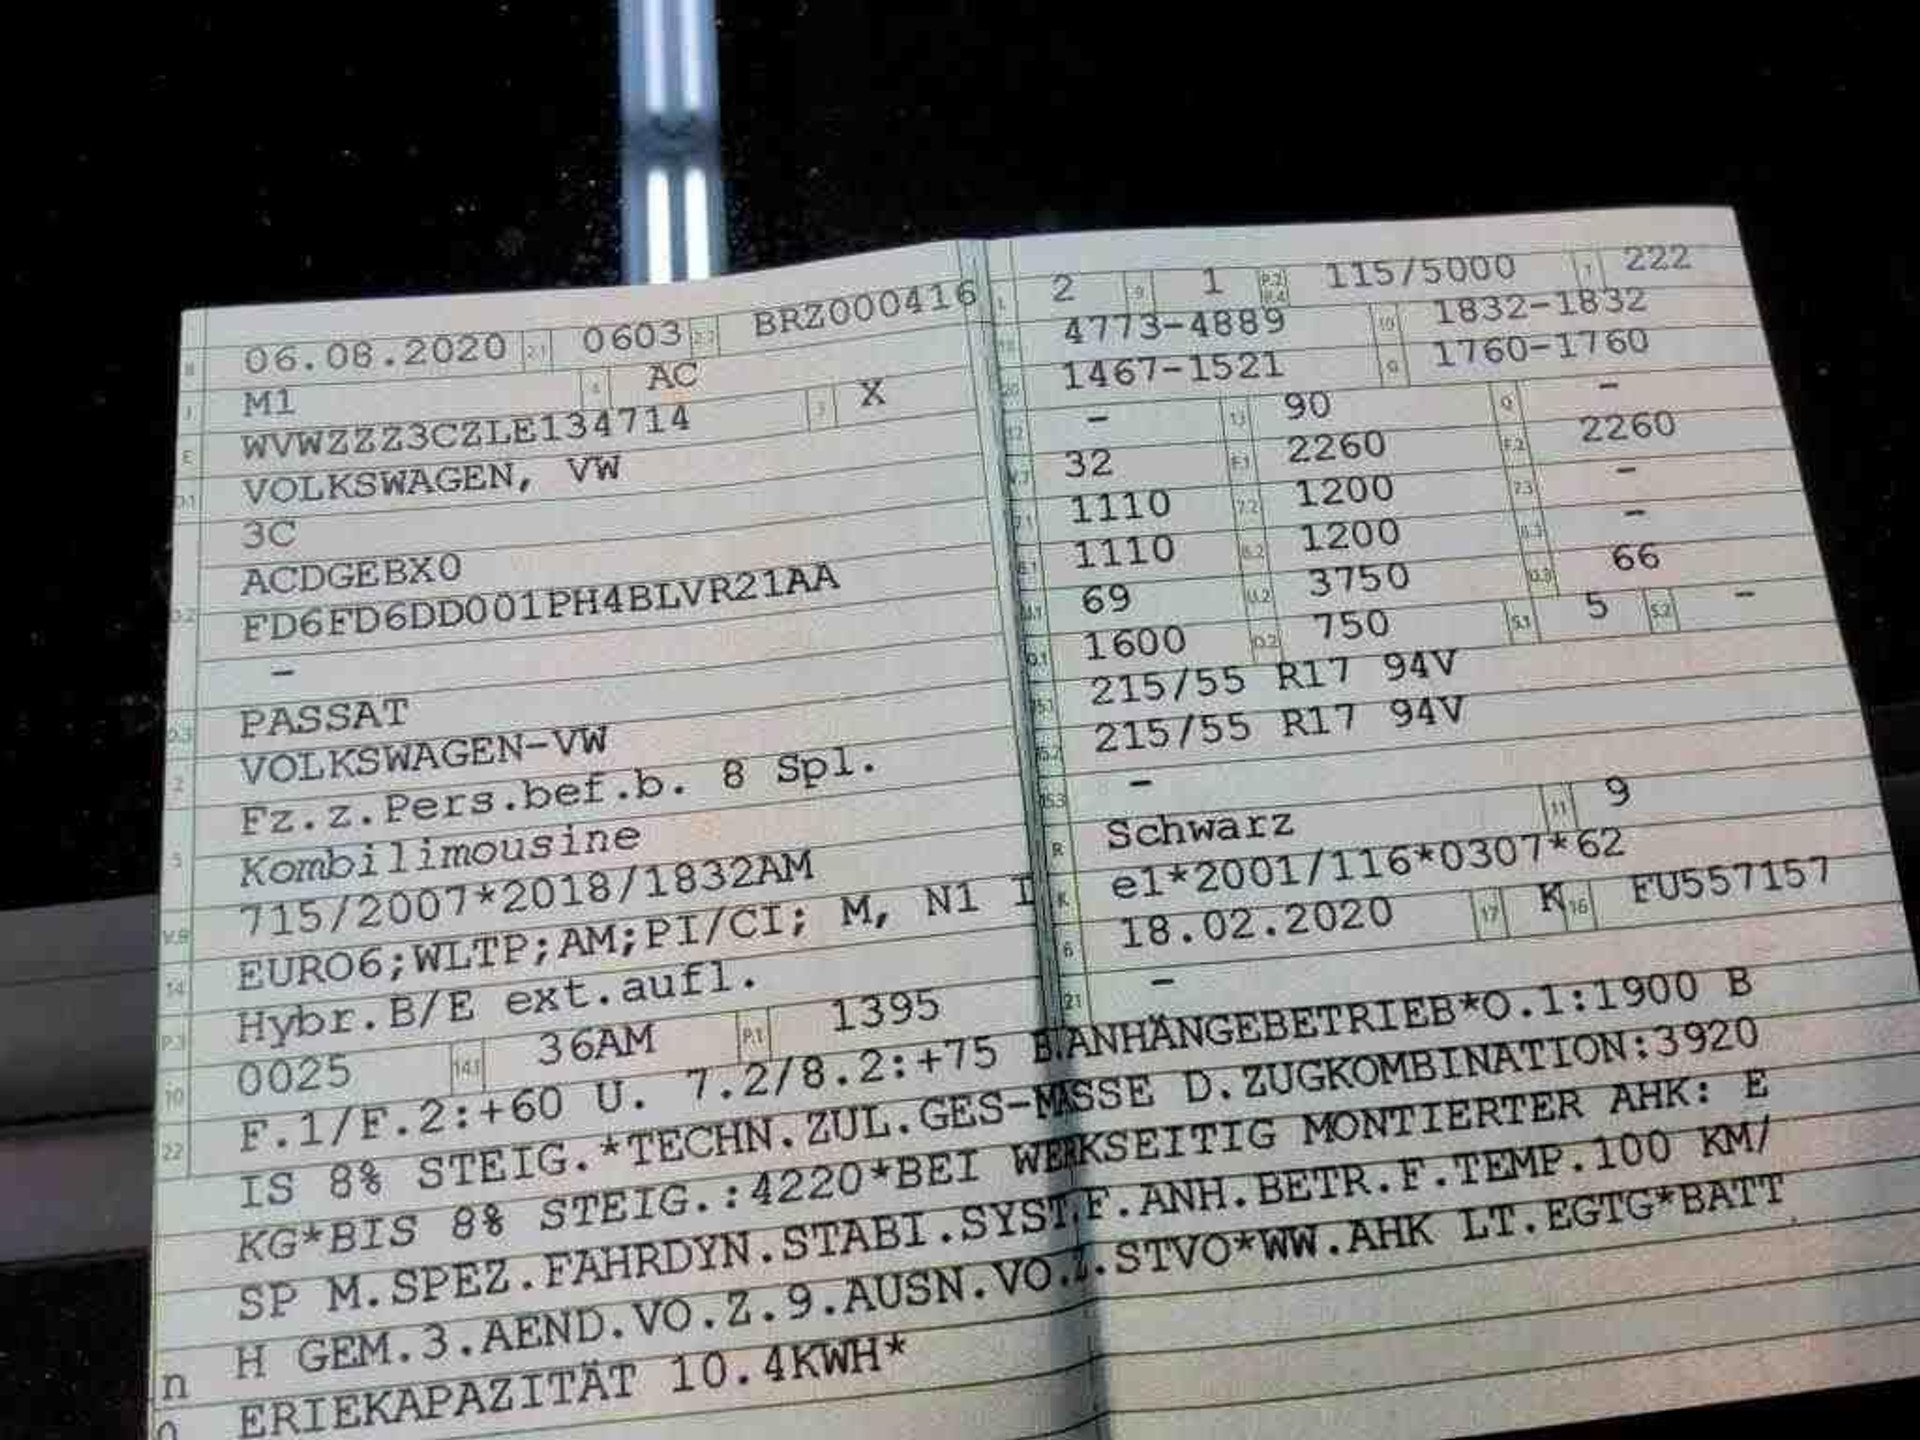 B 06.08.2020 2.1 0603 2.2 BRZ000416
J M1 4 AC
E WVWZZZ3CZLE134714 3 X
D.1 VOLKSWAGEN, VW
3C
ACDGEBX0
D.2 FD6FD6DD001PH4BLVR21AA
-
D.3 PASSAT
2 VOLKSWAGEN-VW
Fz.z.Pers.bef.b. 8 Spl.
5 Kombilimousine
V.9 715/2007*2018/1832AM
14 EURO6;WLTP;AM;PI/CI; M, N1 I
P.3 Hybr.B/E ext.aufl.
10 0025 14.1 36AM P.1 1395
L 2 9 1 P.2 P.4 115/5000 T 222
18 4773-4889 19 1832-1832
20 1467-1521 G 1760-1760
12 - 13 90 Q -
V.7 32 F.1 2260 F.2 2260
7.1 1110 7.2 1200 7.3 -
8.1 1110 8.2 1200 8.3 -
U.1 69 U.2 3750 U.3 66
O.1 1600 O.2 750 S.1 5 S.2 -
15.1 215/55 R17 94V
15.2 215/55 R17 94V
15.3 -
R Schwarz 11 9
K e1*2001/116*0307*62
6 18.02.2020 17 K 16 FU557157
21 -
22 F.1/F.2:+60 U. 7.2/8.2:+75 B.ANHÄNGEBETRIEB*O.1:1900 B
IS 8% STEIG.*TECHN.ZUL.GES-MASSE D.ZUGKOMBINATION:3920
KG*BIS 8% STEIG.:4220*BEI WERKSEITIG MONTIERTER AHK: E
SP M.SPEZ.FAHRDYN.STABI.SYST.F.ANH.BETR.F.TEMP.100 KM/
n H GEM.3.AEND.VO.Z.9.AUSN.VO.Z.STVO*WW.AHK LT.EGTG*BATT
ERIEKAPAZITÄT 10.4KWH*